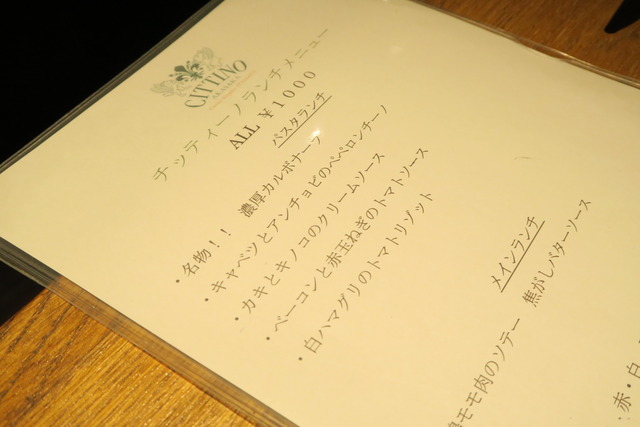 CITTINO
AKASAKA
チッティーノランチメニュー
ALL ¥1000
パスタランチ
・名物！！ 濃厚カルボナーラ
・キャベツとアンチョビのペペロンチーノ
・カキとキノコのクリームソース
・ベーコンと赤玉ねぎのトマトソース
・白ハマグリのトマトリゾット
メインランチ
モモ肉のソテー 焦がしバターソース
・赤・白